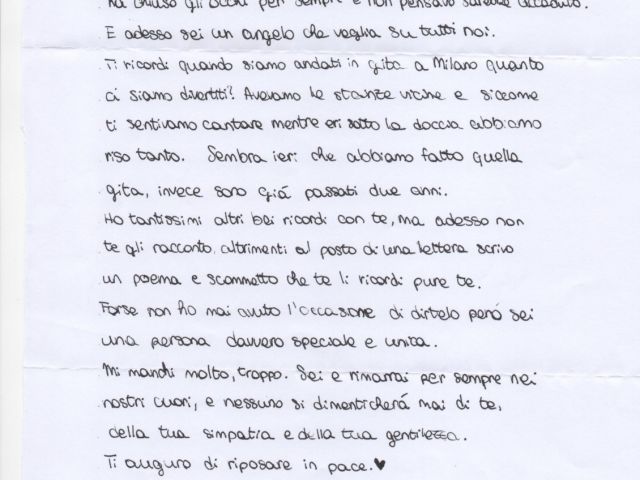 ha chiuso gli occhi per sempre e non pensavo sarebbe accaduto.
E adesso sei un angelo che veglia su tutti noi.
Ti ricordi quando siamo andati in gita a Milano quanto
ci siamo divertiti? Avevamo le stanze vicine e siccome
ti sentivamo cantare mentre eri sotto la doccia abbiamo
riso tanto. Sembra ieri che abbiamo fatto quella
gita, invece sono giá passati due anni.
Ho tantissimi altri bei ricordi con te, ma adesso non
te gli racconto, altrimenti al posto di una lettera scrivo
un poema e scommetto che te li ricordi pure te.
Forse non ho mai avuto l'occasione di dirtelo peró sei
una persona davvero speciale e unica.
Mi manchi molto, troppo. Sei e rimarrai per sempre nei
nostri cuori, e nessuno si dimenticherá mai di te,
della tua simpatia e della tua gentilezza.
Ti auguro di riposare in pace.♥